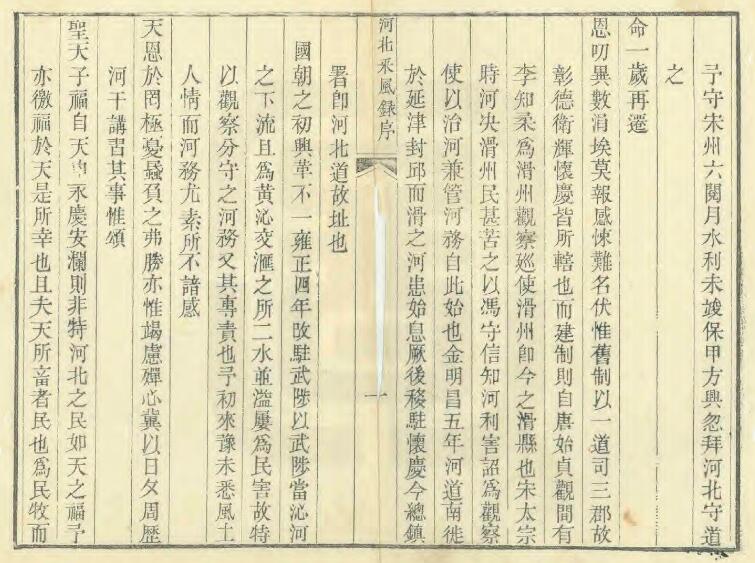 予守宋州六閱月水利未竣保甲方興忽拜河北守道
之
命一歲再遷
恩叨異數涓埃莫報感悚難名伏惟舊制以一道司三郡故
彰德衛輝懷慶皆所轄也而建制則自唐始貞觀間有
李知柔為滑州觀察廵使滑州卽今之滑縣也宋太宗
時河决滑州民甚苦之以馮守信知河利害詔為觀察
使以治河兼管河務自此始也金明昌五年河道南徙
於延津封邱而滑之河患始息厥後移駐懷慶今總鎮
河北采風錄序
一
署卽河北道故址也
國朝之初興革不一雍正四年改駐武陟以武陟當沁河
之下流且為黃沁交滙之所二水並溢屢為民害故特
以觀察分守之河務又其專責也予初來豫未悉風土
人情而河務尤素所不諳感
天恩於罔極憂蟁負之弗勝亦惟竭慮殫心冀以日夕周歷
河干講習其事惟頌
聖天子福自天申永慶安瀾則非特河北之民如天之福予
亦徼福於天是所幸也且夫天所畜者民也為民牧而